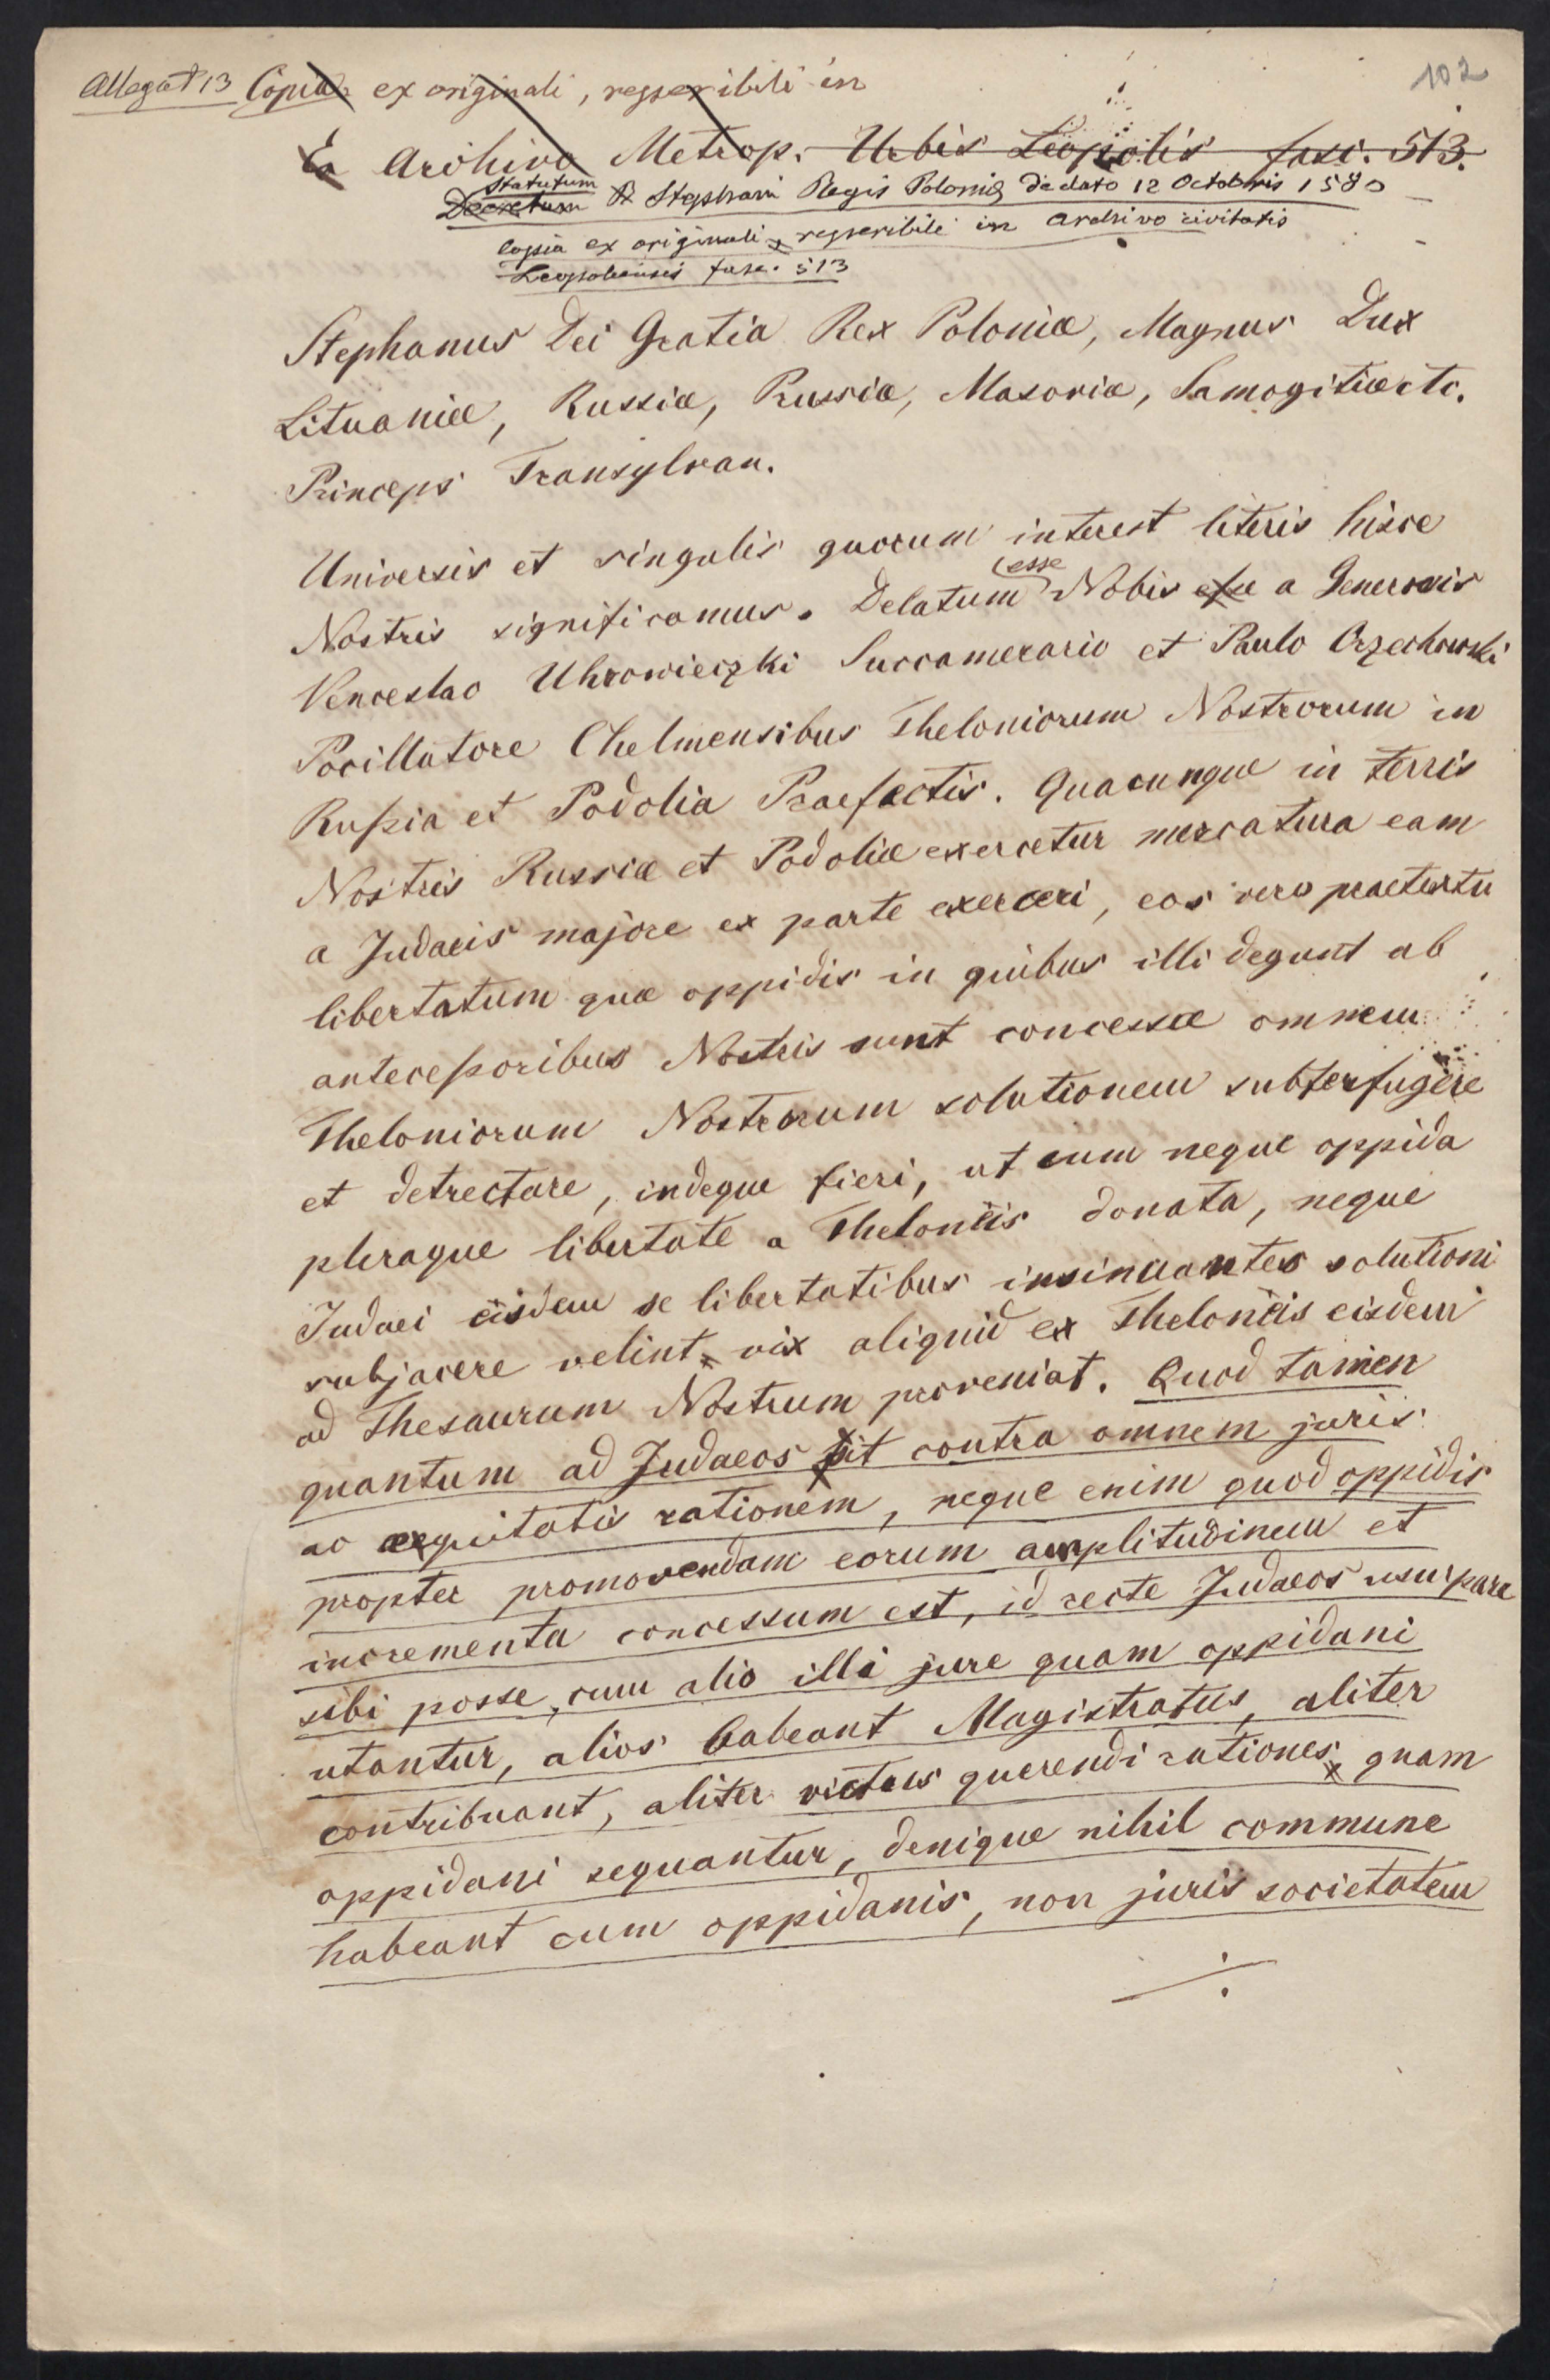 Allegat 13 Copia ex originali, regseribili in
102
Ex Archivo Metrop. Urbis Leopolis fasc. 513.
Statutum
Decretum Stephani Regis Poloniæ de dato 12 Octobris 1580
copia ex originali regseribili in archivo civitatis
Leopoliensis fasc. 513
Stephanus Dei Gratia Rex Poloniæ, Magnus Dux
Lituaniæ, Russiæ, Prussiæ, Masoviæ, Samogitiæ etc.
Princeps Transylvan.
Universis et singulis quorum interest literis hisce
esse
Nostris significamus. Delatum Nobis esse a Generosis
Venceslao Uhrowieczki Succamerario et Paulo Orzechowski
Pocillatore Chelmensibus Theloniorum Nostrorum in
Rußia et Podolia Praefectis. Quacunque in terris
Nostris Russiæ et Podoliæ exercetur mercatura eam
a Judaeis majore ex parte exerceri, eos vero praetextu
libertatum quæ oppidis in quibus illi degunt ab
anteceßoribus Nostris sunt concessæ omnem
Theloniorum Nostrorum solutionem subterfugere
et detrectare, indeque fieri, ut cum neque oppida
pleraque libertate a Theloniis donata, neque
Judaei iisdem se libertatibus insinuantes solutioni
subjacere velint, vix aliquid ex Theloniis eisdem
ad Thesaurum Nostrum proveniat. Quod tamen
quantum ad Judaeos fit contra omnem juris
ac aequitatis rationem, neque enim quod oppidis
propter promovendam eorum amplitudinem et
incrementa concessum est, id recte Judaeos usurpare
sibi posse, cum alio illi jure quam oppidani
utantur, alios habeant Magistratus, aliter
contribuant, aliter victus querendi rationes, quam
oppidani sequantur, denique nihil commune
habeant cum oppidanis, non juris societatem
./.